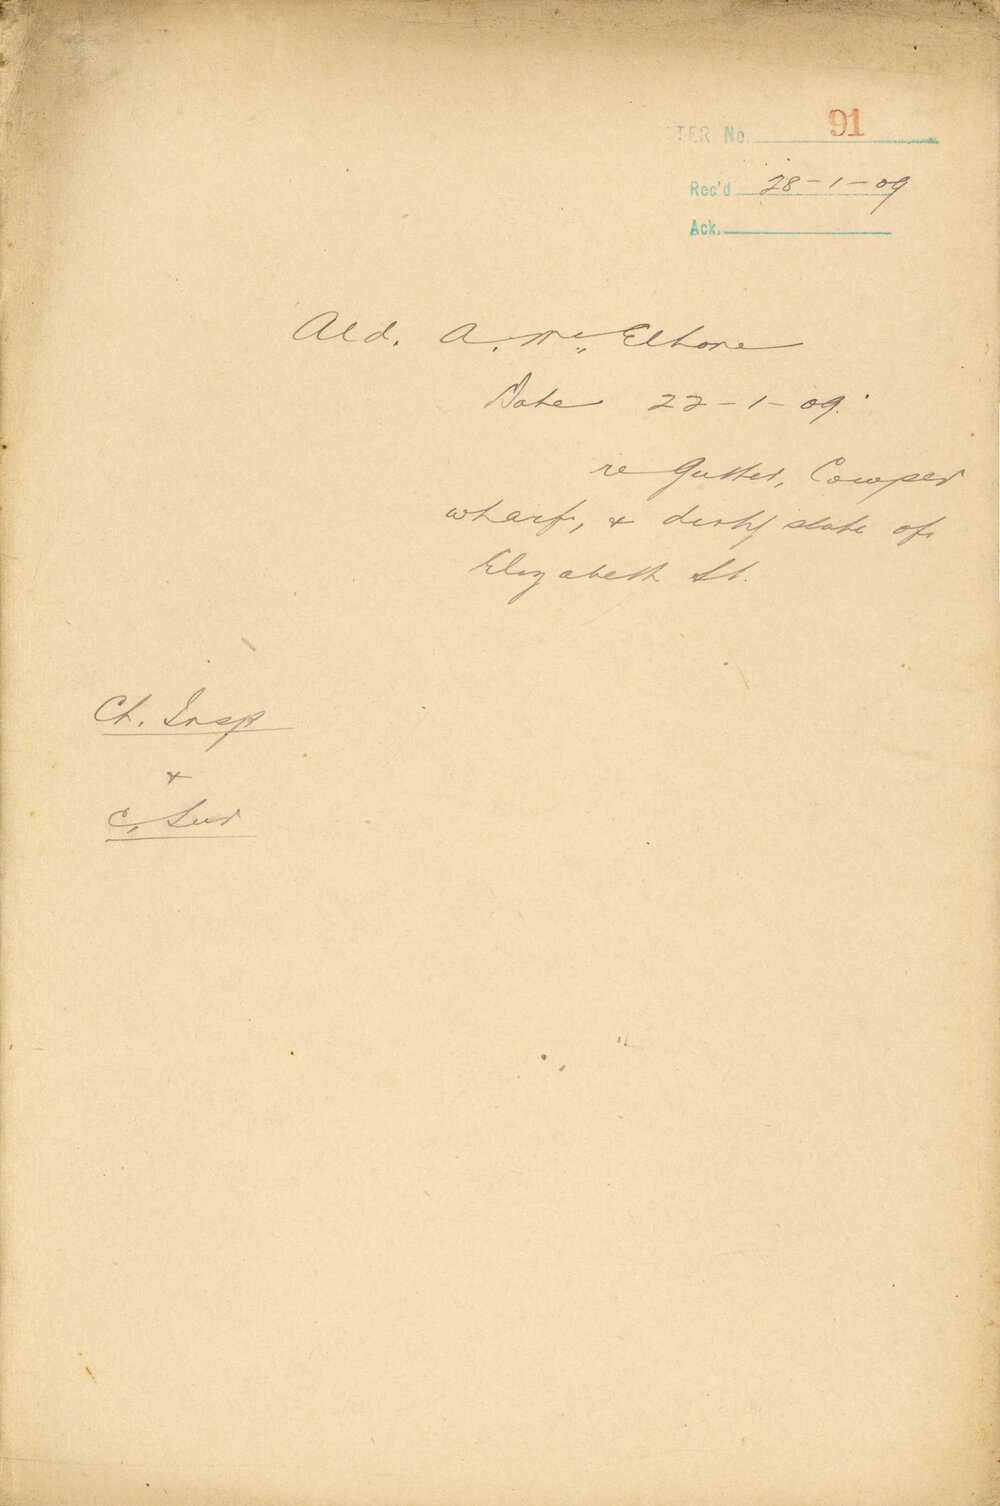 TER No. 91
Rec'd 28-1-09
Ack.
Ald. A. Mc Elhone
Date 22-1-09.
re Gutter, Cowper
wharf, & dirty state of
Elizabeth St.
Ch. Insp
&
C. Sur